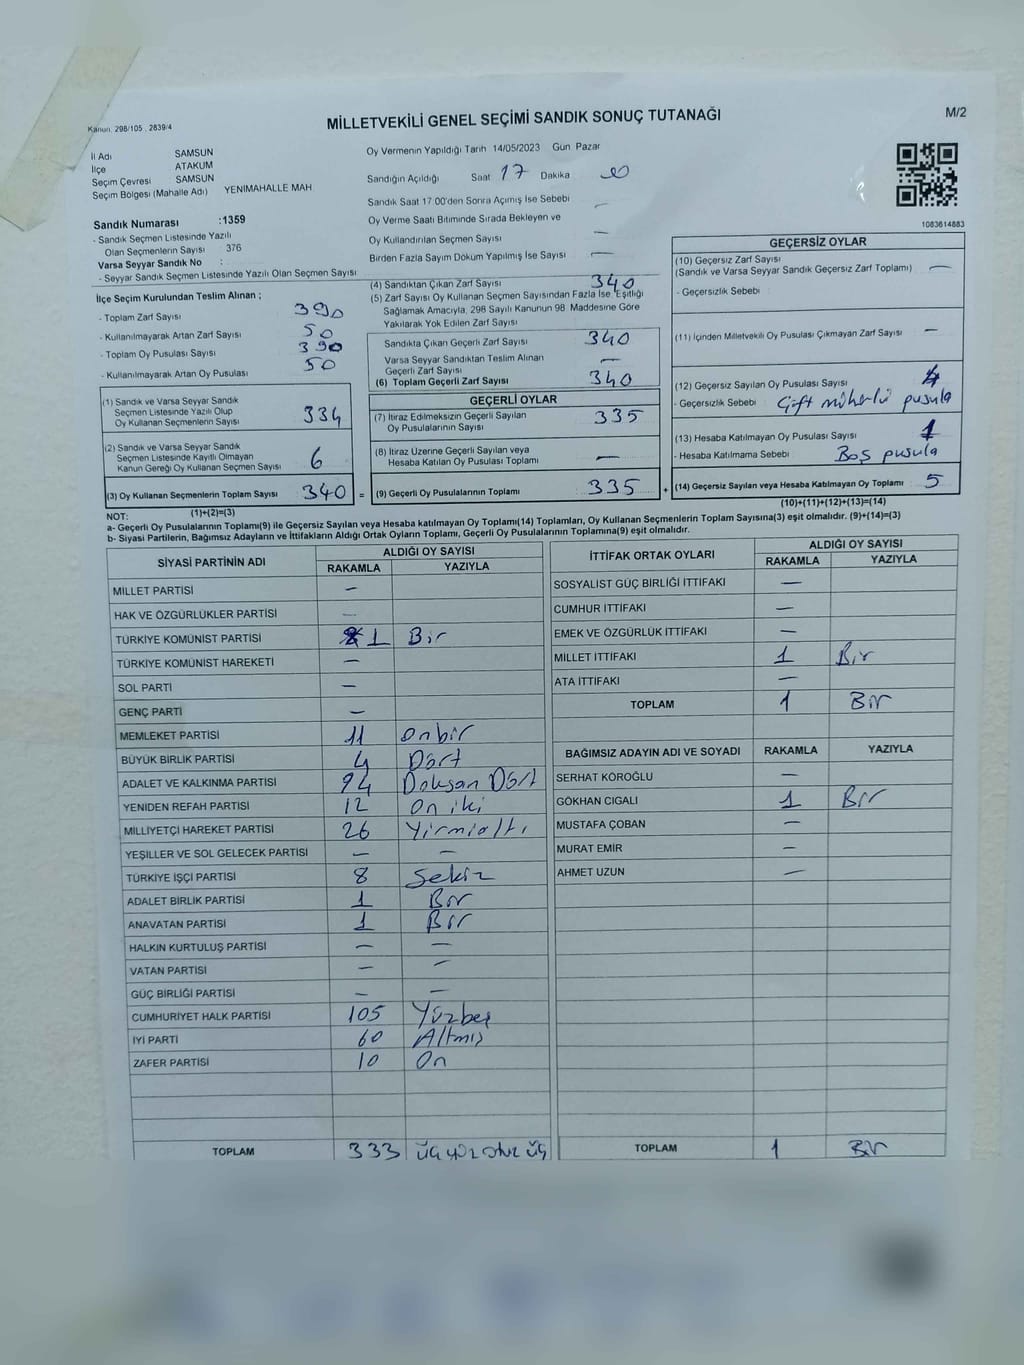 Kanun. 298/105 . 2839/4
MİLLETVEKİLİ GENEL SEÇİMİ SANDIK SONUÇ TUTANAĞI
M/2
İl Adı SAMSUN
İlçe ATAKUM
Seçim Çevresi SAMSUN
Seçim Bölgesi (Mahalle Adı) YENİMAHALLE MAH
Sandık Numarası :1359
- Sandık Seçmen Listesinde Yazılı
Olan Seçmenlerin Sayısı 376
Varsa Seyyar Sandık No :
- Seyyar Sandık Seçmen Listesinde Yazılı Olan Seçmen Sayısı
Oy Vermenin Yapıldığı Tarih 14/05/2023 Gün Pazar
Sandığın Açıldığı Saat 17 Dakika
Sandık Saat 17.00'den Sonra Açmış İse Sebebi —
Oy Verme Saati Bitiminde Sırada Bekleyen ve
Oy Kullandırılan Seçmen Sayısı —
Birden Fazla Sayım Döküm Yapılmış İse Sayısı —
1083614883
İlçe Seçim Kurulundan Teslim Alınan ;
- Toplam Zarf Sayısı 390
- Kullanılmayarak Artan Zarf Sayısı 50
- Toplam Oy Pusulası Sayısı 390
- Kullanılmayarak Artan Oy Pusulası 50
(1) Sandık ve Varsa Seyyar Sandık
Seçmen Listesinde Yazılı Olup
Oy Kullanan Seçmenlerin Sayısı 334
(2) Sandık ve Varsa Seyyar Sandık
Seçmen Listesinde Kayıtlı Olmayan
Kanun Gereği Oy Kullanan Seçmen Sayısı 6
(3) Oy Kullanan Seçmenlerin Toplam Sayısı 340 =
(4) Sandıktan Çıkan Zarf Sayısı 340
(5) Zarf Sayısı Oy Kullanan Seçmen Sayısından Fazla İse, Eşitliği
Sağlamak Amacıyla, 298 Sayılı Kanunun 98. Maddesine Göre
Yakılarak Yok Edilen Zarf Sayısı
Sandıkta Çıkan Geçerli Zarf Sayısı 340
Varsa Seyyar Sandıktan Teslim Alınan
Geçerli Zarf Sayısı —
(6) Toplam Geçerli Zarf Sayısı 340
GEÇERLİ OYLAR
(7) İtiraz Edilmeksizin Geçerli Sayılan
Oy Pusulalarının Sayısı 335
(8) İtiraz Üzerine Geçerli Sayılan veya
Hesaba Katılan Oy Pusulası Toplamı —
(9) Geçerli Oy Pusulalarının Toplamı 335 +
GEÇERSİZ OYLAR
(10) Geçersiz Zarf Sayısı
(Sandık ve Varsa Seyyar Sandık Geçersiz Zarf Toplamı) —
- Geçersizlik Sebebi :
(11) İçinden Milletvekili Oy Pusulası Çıkmayan Zarf Sayısı —
(12) Geçersiz Sayılan Oy Pusulası Sayısı 4
- Geçersizlik Sebebi Çift mühürlü pusula
(13) Hesaba Katılmayan Oy Pusulası Sayısı 1
- Hesaba Katılmama Sebebi Boş pusula
(14) Geçersiz Sayılan veya Hesaba Katılmayan Oy Toplamı 5
NOT: (1)+(2)=(3) (10)+(11)+(12)+(13)=(14)
a- Geçerli Oy Pusulalarının Toplamı(9) ile Geçersiz Sayılan veya Hesaba katılmayan Oy Toplamı(14) Toplamları, Oy Kullanan Seçmenlerin Toplam Sayısına(3) eşit olmalıdır. (9)+(14)=(3)
b- Siyasi Partilerin, Bağımsız Adayların ve İttifakların Aldığı Ortak Oyların Toplamı, Geçerli Oy Pusulalarının Toplamına(9) eşit olmalıdır.
SİYASİ PARTİNİN ADI ALDIĞI OY SAYISI
RAKAMLA YAZIYLA
MİLLET PARTİSİ —
HAK VE ÖZGÜRLÜKLER PARTİSİ —
TÜRKİYE KOMÜNİST PARTİSİ 1 Bir
TÜRKİYE KOMÜNİST HAREKETİ —
SOL PARTİ —
GENÇ PARTİ —
MEMLEKET PARTİSİ 11 Onbir
BÜYÜK BİRLİK PARTİSİ 4 Dört
ADALET VE KALKINMA PARTİSİ 94 Doksan Dört
YENİDEN REFAH PARTİSİ 12 On iki
MİLLİYETÇİ HAREKET PARTİSİ 26 Yirmialtı
YEŞİLLER VE SOL GELECEK PARTİSİ — —
TÜRKİYE İŞÇİ PARTİSİ 8 Sekiz
ADALET BİRLİK PARTİSİ 1 Bir
ANAVATAN PARTİSİ 1 Bir
HALKIN KURTULUŞ PARTİSİ — —
VATAN PARTİSİ — —
GÜÇ BİRLİĞİ PARTİSİ — —
CUMHURİYET HALK PARTİSİ 105 Yüzbeş
İYİ PARTİ 60 Altmış
ZAFER PARTİSİ 10 On
TOPLAM 333 üçyüzotuz üç
İTTİFAK ORTAK OYLARI ALDIĞI OY SAYISI
RAKAMLA YAZIYLA
SOSYALİST GÜÇ BİRLİĞİ İTTİFAKI —
CUMHUR İTTİFAKI —
EMEK VE ÖZGÜRLÜK İTTİFAKI —
MİLLET İTTİFAKI 1 Bir
ATA İTTİFAKI —
TOPLAM 1 Bir
BAĞIMSIZ ADAYIN ADI VE SOYADI RAKAMLA YAZIYLA
SERHAT KÖROĞLU —
GÖKHAN CIGALI 1 Bir
MUSTAFA ÇOBAN —
MURAT EMİR —
AHMET UZUN —
TOPLAM 1 Bir